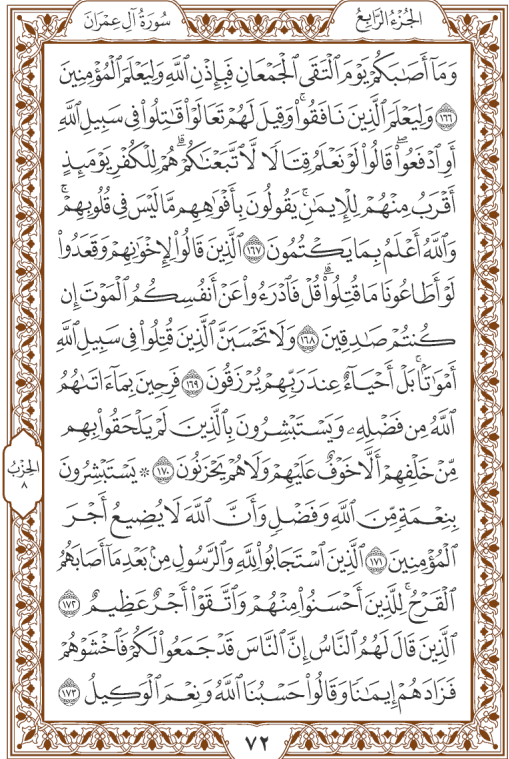 الجزء الرابع
سورة آل عمران
وَمَآ أَصَٰبَكُمْ يَوْمَ ٱلْتَقَى ٱلْجَمْعَانِ فَبِإِذْنِ ٱللَّهِ وَلِيَعْلَمَ ٱلْمُؤْمِنِينَ
١٦٦ وَلِيَعْلَمَ ٱلَّذِينَ نَافَقُوا۟ۚ وَقِيلَ لَهُمْ تَعَالَوْا۟ قَٰتِلُوا۟ فِى سَبِيلِ ٱللَّهِ
أَوِ ٱدْفَعُوا۟ۖ قَالُوا۟ لَوْ نَعْلَمُ قِتَالًا لَّٱتَّبَعْنَٰكُمْۗ هُمْ لِلْكُفْرِ يَوْمَئِذٍ
أَقْرَبُ مِنْهُمْ لِلْإِيمَٰنِۚ يَقُولُونَ بِأَفْوَٰهِهِم مَّا لَيْسَ فِى قُلُوبِهِمْۚ
وَٱللَّهُ أَعْلَمُ بِمَا يَكْتُمُونَ ١٦٧ ٱلَّذِينَ قَالُوا۟ لِإِخْوَٰنِهِمْ وَقَعَدُوا۟
لَوْ أَطَاعُونَا مَا قُتِلُوا۟ۗ قُلْ فَٱدْرَءُوا۟ عَنْ أَنفُسِكُمُ ٱلْمَوْتَ إِن
كُنتُمْ صَٰدِقِينَ ١٦٨ وَلَا تَحْسَبَنَّ ٱلَّذِينَ قُتِلُوا۟ فِى سَبِيلِ ٱللَّهِ
أَمْوَٰتًۢاۚ بَلْ أَحْيَآءٌ عِندَ رَبِّهِمْ يُرْزَقُونَ ١٦٩ فَرِحِينَ بِمَآ ءَاتَىٰهُمُ
ٱللَّهُ مِن فَضْلِهِۦ وَيَسْتَبْشِرُونَ بِٱلَّذِينَ لَمْ يَلْحَقُوا۟ بِهِم
مِّنْ خَلْفِهِمْ أَلَّا خَوْفٌ عَلَيْهِمْ وَلَا هُمْ يَحْزَنُونَ ١٧٠ ۞ يَسْتَبْشِرُونَ
بِنِعْمَةٍ مِّنَ ٱللَّهِ وَفَضْلٍ وَأَنَّ ٱللَّهَ لَا يُضِيعُ أَجْرَ
ٱلْمُؤْمِنِينَ ١٧١ ٱلَّذِينَ ٱسْتَجَابُوا۟ لِلَّهِ وَٱلرَّسُولِ مِنۢ بَعْدِ مَآ أَصَابَهُمُ
ٱلْقَرْحُۚ لِلَّذِينَ أَحْسَنُوا۟ مِنْهُمْ وَٱتَّقَوْا۟ أَجْرٌ عَظِيمٌ ١٧٢
ٱلَّذِينَ قَالَ لَهُمُ ٱلنَّاسُ إِنَّ ٱلنَّاسَ قَدْ جَمَعُوا۟ لَكُمْ فَٱخْشَوْهُمْ
فَزَادَهُمْ إِيمَٰنًا وَقَالُوا۟ حَسْبُنَا ٱللَّهُ وَنِعْمَ ٱلْوَكِيلُ ١٧٣
الحزب
٨
٧٢